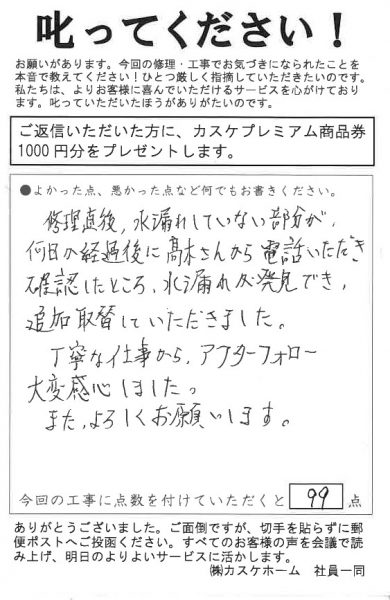 叱ってください！
お願いがあります。今回の修理・工事でお気づきになられたことを
本音で教えてください！ひとつ厳しく指摘していただきたいのです。
私たちは、よりお客様に喜んでいただけるサービスを心がけており
ます。叱っていただいたほうがありがたいのです。
ご返信いただいた方に、カスケプレミアム商品券
1000円分をプレゼントします。
●よかった点、悪かった点など何でもお書きください。
修理直後，水漏れしていない部分が，
何日か経過後に髙木さんから電話いただき
確認したところ，水漏れが発見でき，
追加取替していただきました。
丁寧な仕事から，アフターフォロー
大変感心しました。
また，よろしくお願いします。
今回の工事に点数を付けていただくと 99 点
ありがとうございました。ご面倒ですが、切手を貼らずに郵
便ポストへご投函ください。すべてのお客様の声を会議で読
み上げ、明日のよりよいサービスに活かします。
㈱カスケホーム 社員一同